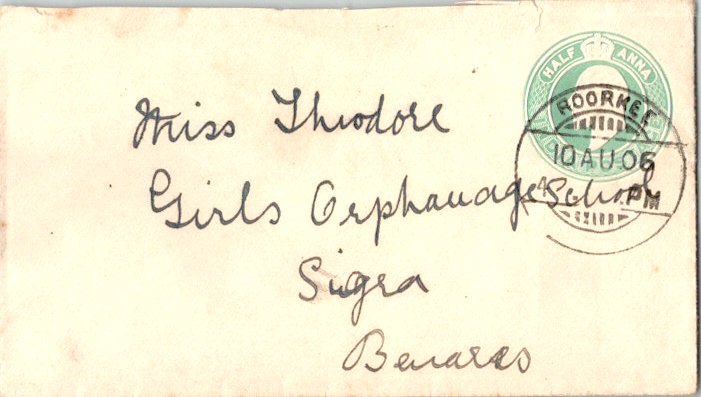 HALF ANNA
ROORKEE
10 AU 06
PM
Miss Theodore
Girls Orphanage School
Sigra
Benares